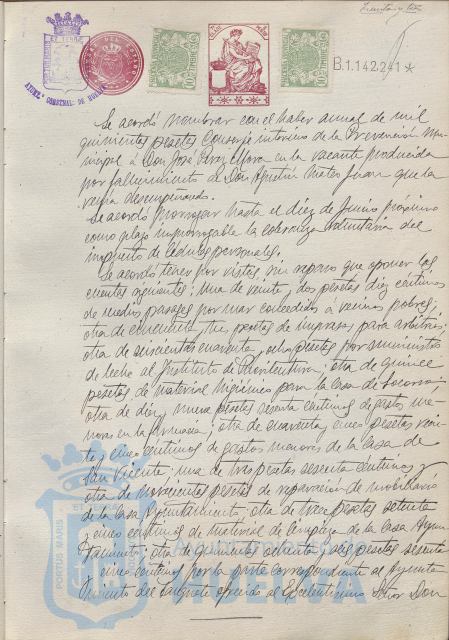 Treinta y tres
AYUNT. CONSTNAL. DE HUELVA
B.1.142.241 *
Se acordó nombrar con el haber anual de mil
quinientas pesetas Conserje interino de la Prevención Mu-
nicipal á Don José Pérez en la vacante producida
por fallecimiento de Don Agustín Nieto Juan que la
venía desempeñando.
Se acordó prorrogar hasta el diez de Junio próximo
como plazo improrrogable la cobranza voluntaria del
impuesto de cédulas personales.
Se acordó tener por vistas, sin reparo que oponer las
cuentas siguientes: una de veinte y dos pesetas diez céntimos
de medios pasajes por mar concedidos a vecinos pobres;
otra de cincuenta y tres pesetas de impresos para arbitrios;
otra de seiscientas cuarenta y ocho pesetas por suministros
de leche al Instituto de Puericultura; otra de quince
pesetas de material higiénico para la Casa de Socorro;
otra de diez y nueve pesetas sesenta céntimos de gastos me-
nores en la farmacia; otra de cuarenta y cinco pesetas vein-
te y cinco céntimos de gastos menores de la Casa de
San Vicente; una de tres pesetas sesenta céntimos y
otra de novecientas pesetas de reparación de mobiliario
de la Casa Ayuntamiento; otra de trece pesetas setenta
y cinco céntimos de material de limpieza de la Casa Ayun-
tamiento; otra de quinientas setenta y seis pesetas sesenta
y cinco céntimos por la parte correspondiente al Ayunta-
miento del banquete ofrecido al Excelentísimo Señor Don
PORTUS MARIS
Ayuntamiento de
HUELVA